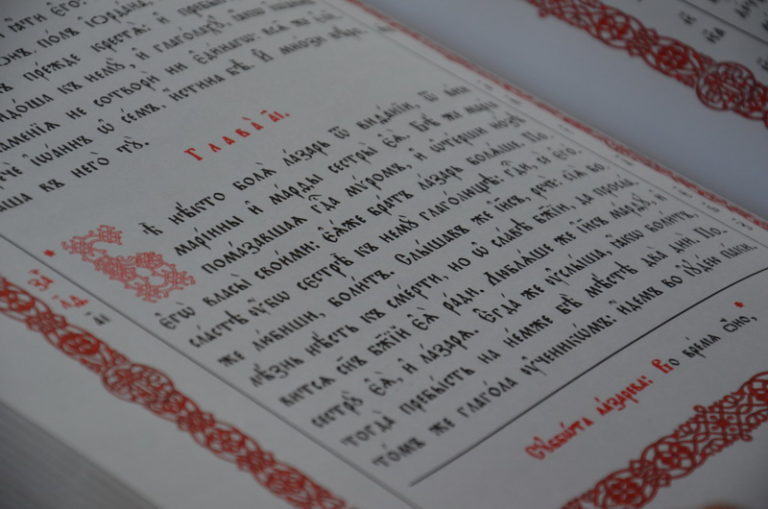 ѧти є҆гѡ̀:
ѡ҆нъ полъ і҆ѻрда́на,
прежде крестѧ̀: и҆ пребы́сть
идо́ша къ немꙋ̀, и҆ глаго́лахꙋ, ꙗ҆́кѡ
наменїѧ не сотворѝ ни є҆ди́нагѡ: всѧ̑ же є҆ли̑ка
рече і҆ѡа́ннъ ѡ҆ се́мъ, и҆́стина бѣ̀. И҆ мно́зи вѣ́ро
ваша въ него̀ тꙋ̀.
Глава̀ а҃і.
Бѣ̀ нѣ́кто болѧ̀ ла́зарь ѿ виѳа́нїи, ѿ ве́си
марі́ины и҆ ма́рѳы сестры̀ є҆ѧ̀. Бѣ́ же марі́а
пома́завшаѧ гд҇а мѵ́ромъ, и҆ ѡ҆те́рши но́зѣ
є҆гѡ̀ власы̀ свои́ми: є҆ѧ́же бра́тъ ла́зарь болѧ́ше. По
сла́стѣ ᲂу҆̀бо сестрѣ̀ къ немꙋ̀ глаго́лющѣ: гд҇и, сѐ є҆го́
же лю́биши, боли́тъ. Слы́шавъ же і҆и҃съ, речѐ: сїѧ̀ бо
лѣ́знь нѣ́сть къ сме́рти, но ѡ҆ сла́вѣ бж҃їи, да просла́
витсѧ сн҃ъ бж҃їй є҆ѧ̀ ра́ди. Люблѧ́ше же і҆и҃съ ма́рѳꙋ, и҆
сестрꙋ̀ є҆ѧ̀, и҆ ла́зарѧ. Є҆гда́ же ᲂу҆слы́ша, ꙗ҆́кѡ боли́тъ,
тогда̀ пребы́сть на не́мже бѣ̀ мѣ́стѣ два̀ дни̑. По
то́мъ же глаго́ла ᲂу҆ченикѡ́мъ: и҆́демъ во і҆ꙋде́ю па́ки.
Сꙋббѡ́та ла́зарева: Во вре́мѧ ѻ҆́но,